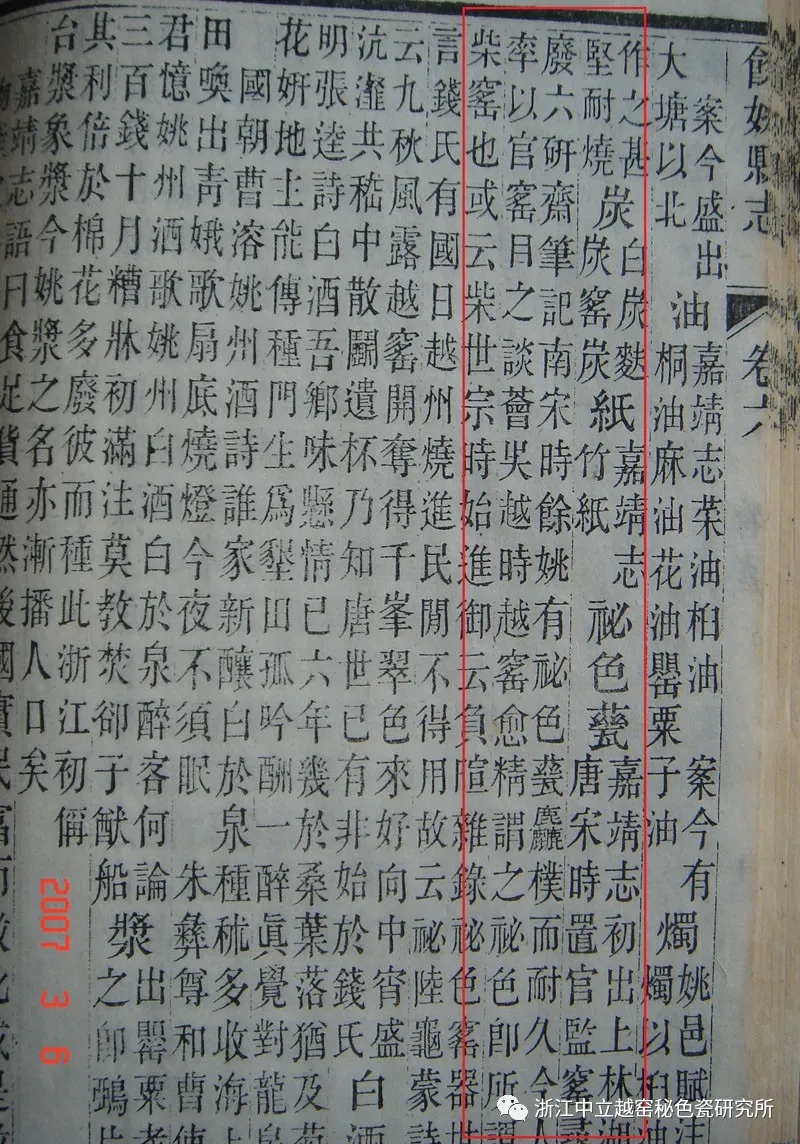 餘姚縣志 卷六
案今盛出 嘉靖志茱油桕油 案今有 姚邑賦注
大塘以北 油 桐油麻油花油罌粟子油 燭 燭以桕油
作之甚 白炭麩 嘉靖志 嘉靖志初出上林湖
堅耐燒 炭 炭窰炭 紙 竹紙 祕色甆 唐宋時置官監窰尋
廢六研齋筆記南宋時餘姚有祕色甆麤樸而耐久今人
率以官窰目之談薈吳越時越窰愈精謂之祕色卽所謂
柴窰也或云柴世宗時始進御云負暄雜錄祕色窰器世
言錢氏有國日越州燒進民閒不得用故云祕陸龜蒙詩
云九秋風露越窰開奪得千峯翠色來好向中宵盛
沆瀣共嵇中散鬭遺杯乃知唐世已有非始於錢氏 白酒
明張逵詩白酒吾鄉味懸情已六年幾於桑葉落猶及菊
花妍地主能傳種門生爲墾田孤吟酬一醉眞覺對龍泉
國朝曹溶姚州酒詩誰家新釀白於泉種秫多收海上
田喚出靑娥歌扇底燒燈今夜不須眠 朱彝尊和曹使
君憶姚州酒歌姚州白酒白於泉醉客何論 出罌粟者
三百錢十月糟牀初滿注莫教焚卻子猷船 漿 之卽鴉片
其利倍於棉花多廢彼而種此浙江初偁
台漿象漿今姚漿之名亦漸播人口矣
嘉靖志語曰食足貨通然後國實民富而
2007 3 6
浙江中立越窑秘色瓷研究所